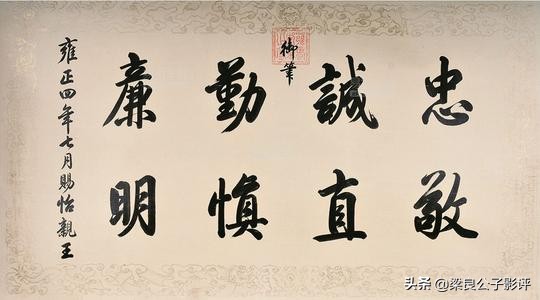 御筆
忠敬
誠直
勤慎
廉明
雍正四年七月賜怡親王
头条 @梁良公子影评